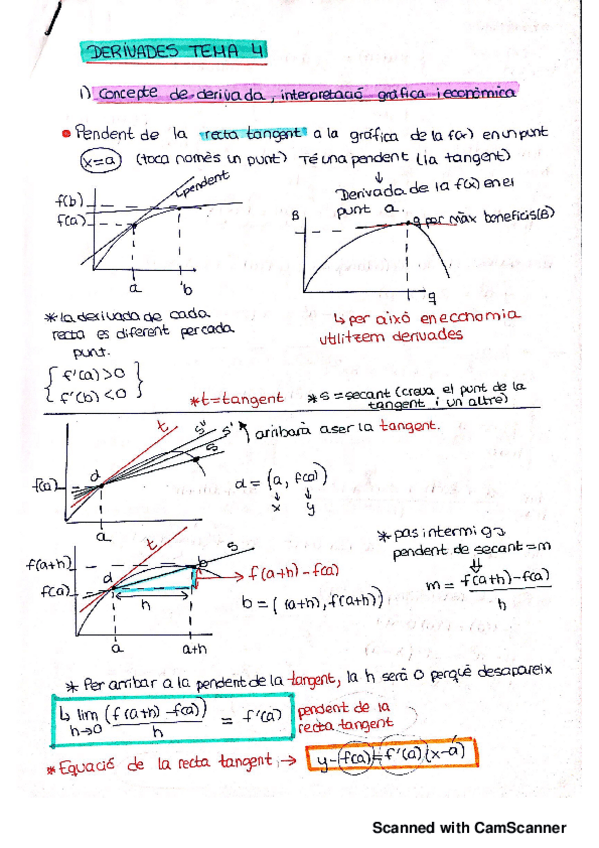 DERIVADES TEMA 4
1) Concepte de derivada, interpretació gràfica i econòmica
• Pendent de la recta tangent a la gráfica de la f(x) en un punt
x=a (toca només un punt) Té una pendent (la tangent)
↓
Derivada de la f(x) en el
punt a.
pendent
f(b)
f(a)
a
b
B
q per màx beneficis (B)
q
↳ per això en economia
utilitzem derivades
* la derivada de cada
recta es diferent per cada
punt.
{ f'(a) > 0 }
{ f'(b) < 0 }
* t = tangent
* s = secant (creua el punt de la
tangent i un altre)
t
s''
s'
s
arribarà a ser la tangent.
f(a)
a
a
a = (a, f(a))
↓ ↓
x y
f(a+h)
f(a)
a
t
b
s
h
a
a+h
→ f(a+h) - f(a)
b = ( (a+h), f(a+h))
* pas intermig →
pendent de secant = m
m = f(a+h)-f(a)
h
* Per arribar a la pendent de la tangent, la h serà 0 perquè desapareix
↳ lim (f(a+h) - f(a)) = f'(a)
h→0 h
pendent de la
recta tangent
* Equació de la recta tangent →
y-f(a)=f'(a)(x-a)
Scanned with CamScanner